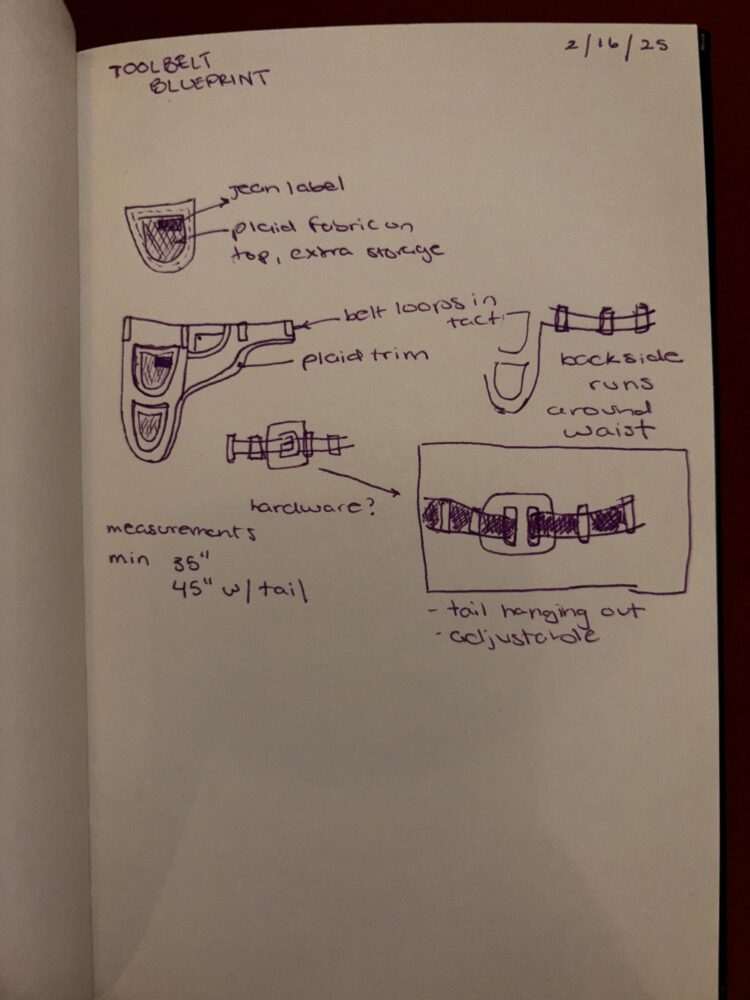 2/16/25
TOOLBELT
BLUEPRINT
jean label
plaid fabric on
top, extra storage
belt loops in
tact
plaid trim
backside
runs
around
waist
hardware?
measurements
min 35"
45" w/ tail
- tail hanging out
- adjustable